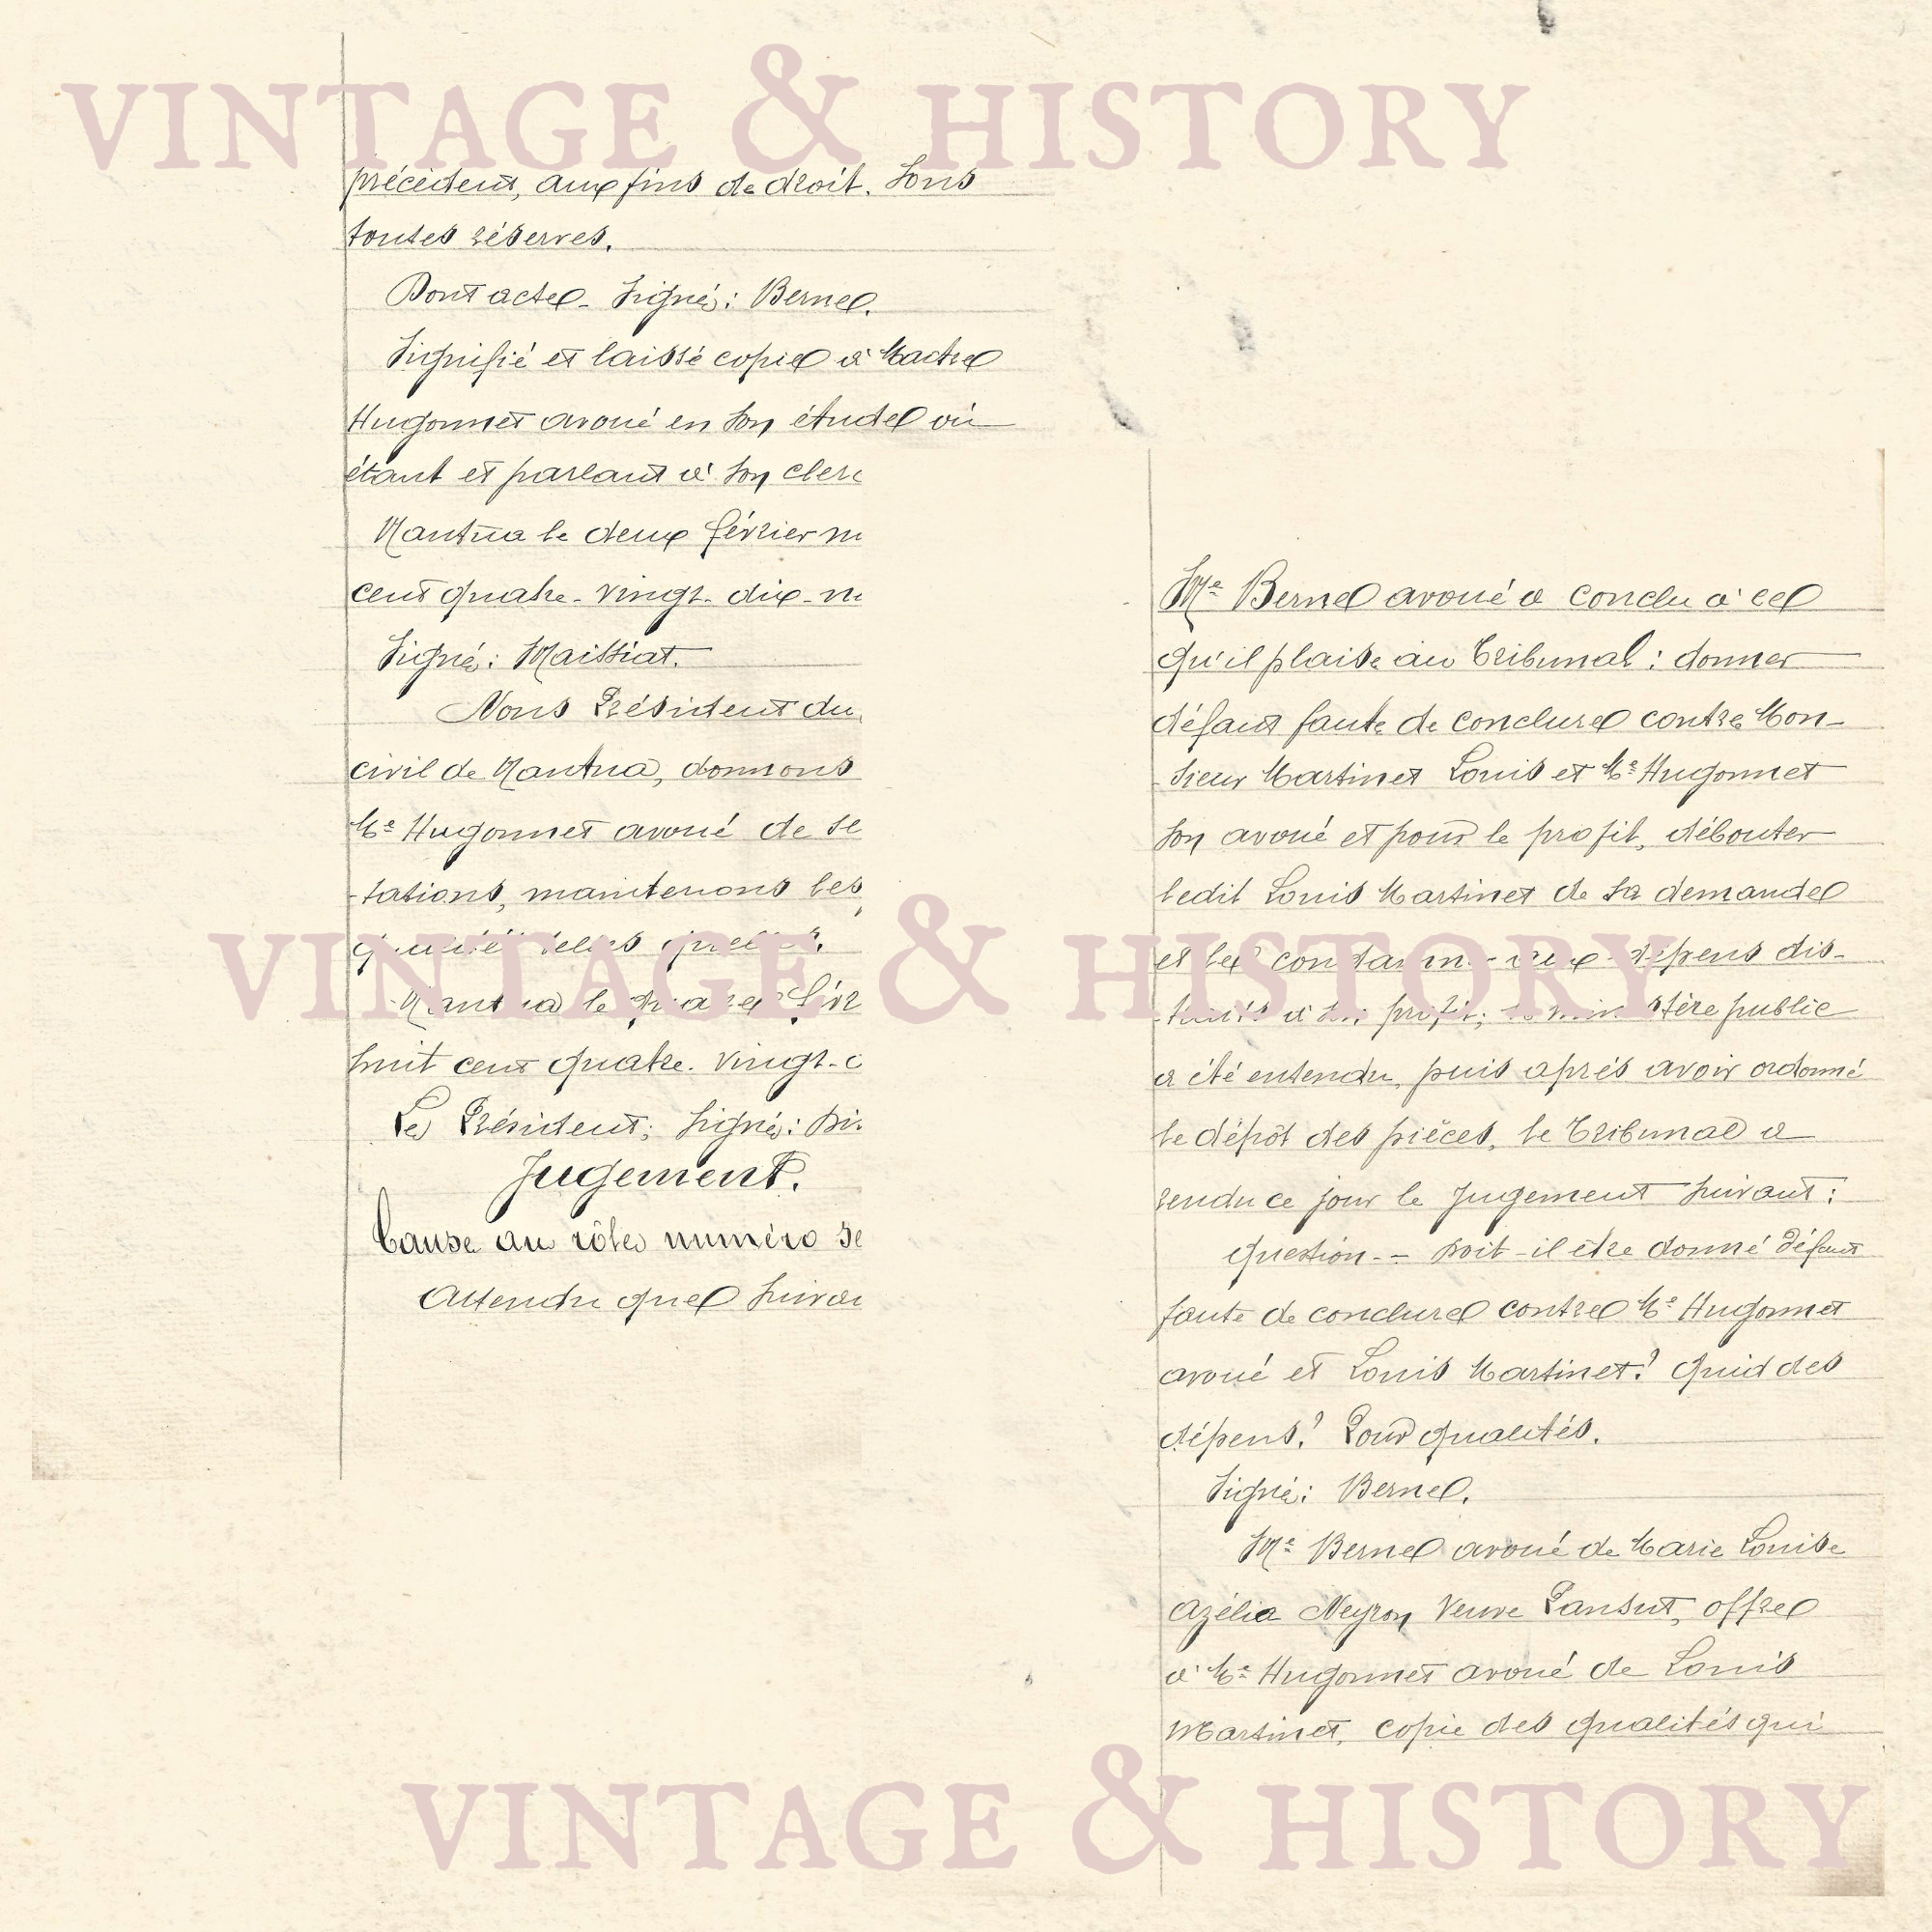 VINTAGE & HISTORY
précèdent, aux fins de droit. Sous
toutes réserves.
Dont acte. Signé: Berne.
Signifié et laissé copie à Maître
Hugonnet avoué en son étude où
étant et parlant à son clerc
Nantua le deux février m
cent quatre-vingt-dix-n
Signé: Maissiat.
Nous Président du
civil de Nantua, donnons
Me Hugonnet avoué de se
-tations, maintenons les
qualités telles quelles.
Nantua le février
huit cent quatre-vingt-
Le Président; Signé:
Jugement.
Cause au rôle numéro se
Attendu que suivan
VINTAGE & HISTORY
Me Berne avoué a conclu à ce
qu'il plaise au Tribunal: donner
défaut faute de conclure contre Mon-
sieur Martinet Louis et Me Hugonnet
son avoué et pour le profit, débouter
ledit Louis Martinet de sa demande
et le condamner aux dépens dis-
-traits à son profit; le ministère public
a été entendu, puis après avoir ordonné
le dépôt des pièces, le Tribunal a
rendu ce jour le Jugement suivant:
Question.- Doit-il être donné défaut
faute de conclure contre Me Hugonnet
avoué et Louis Martinet? Quid des
dépens? Pour qualités.
Signé: Berne.
Me Berne avoué de Marie Louise
Azélia Neyron Veuve Pansut, offre
à Me Hugonnet avoué de Louis
Martinet, copie des qualités qui
VINTAGE & HISTORY